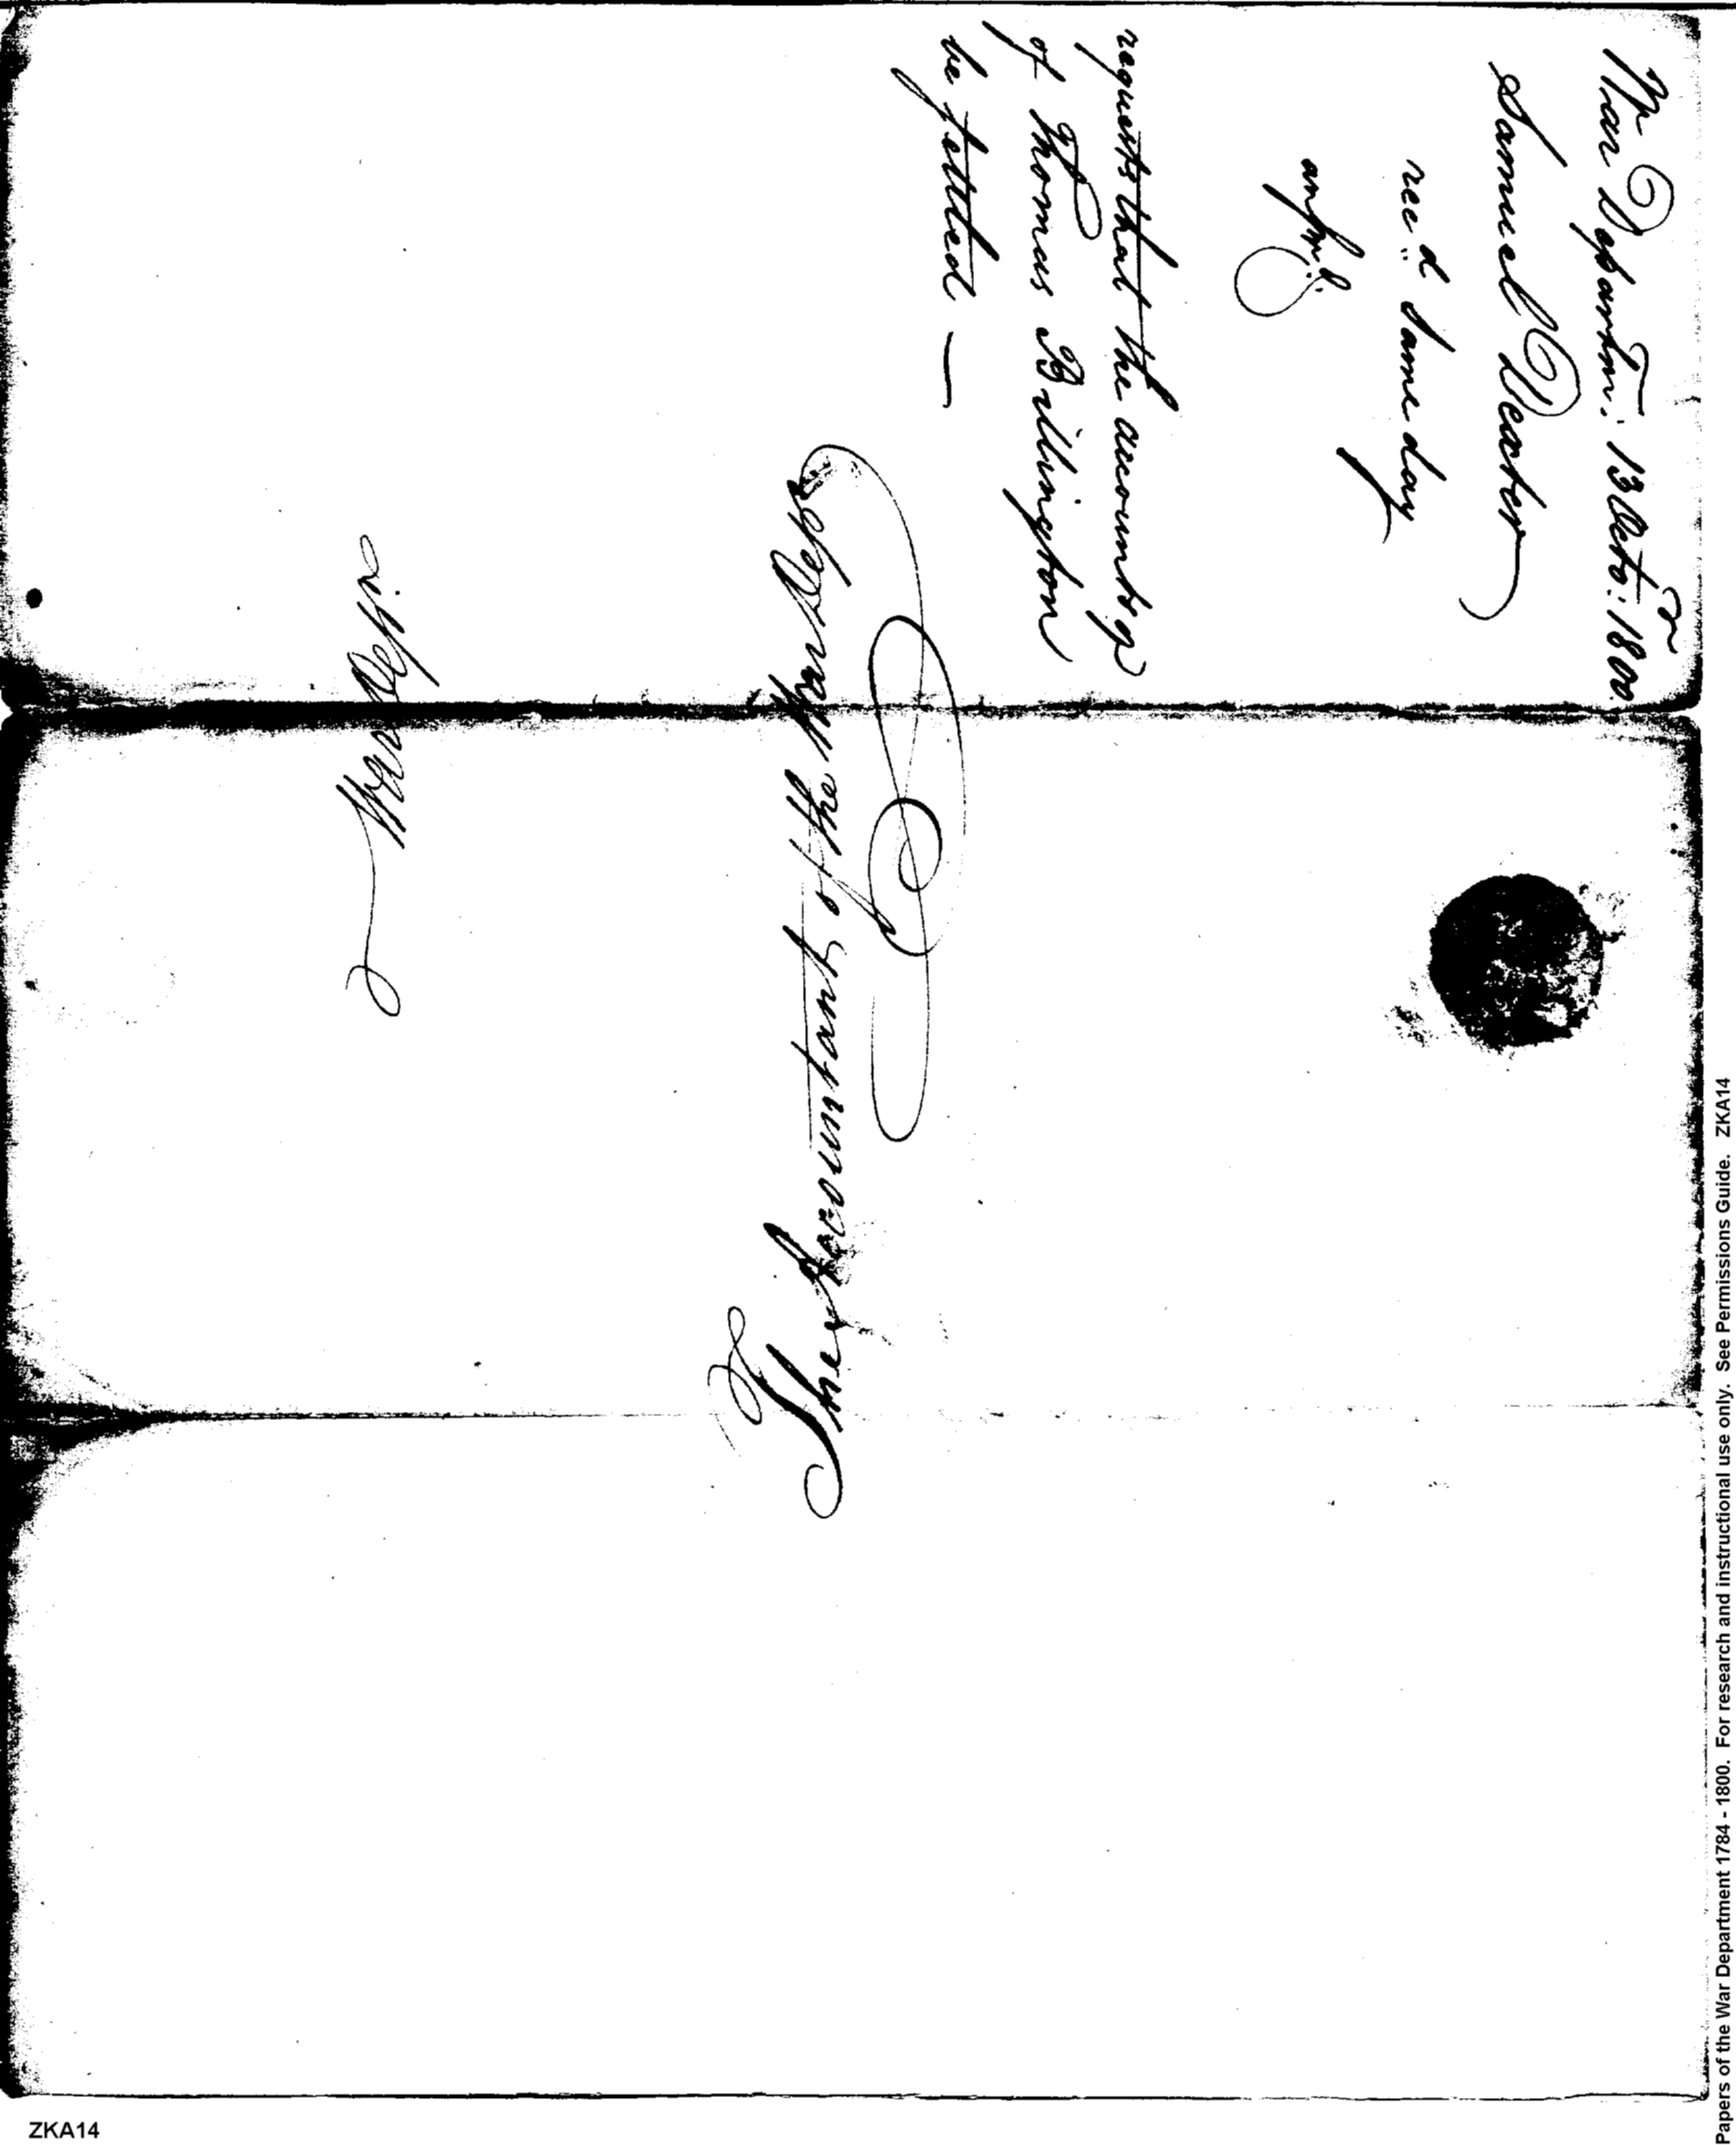 War Departm: 13 Octo: 1800
Samuel Dexter
rec.d same day
ansr.d
requests that the accounts
of Thomas Billington
be settled —
The Accountant of the War Dept
War Dept
Papers of the War Department 1784 - 1800. For research and instructional use only. See Permissions Guide. ZKA14
ZKA14